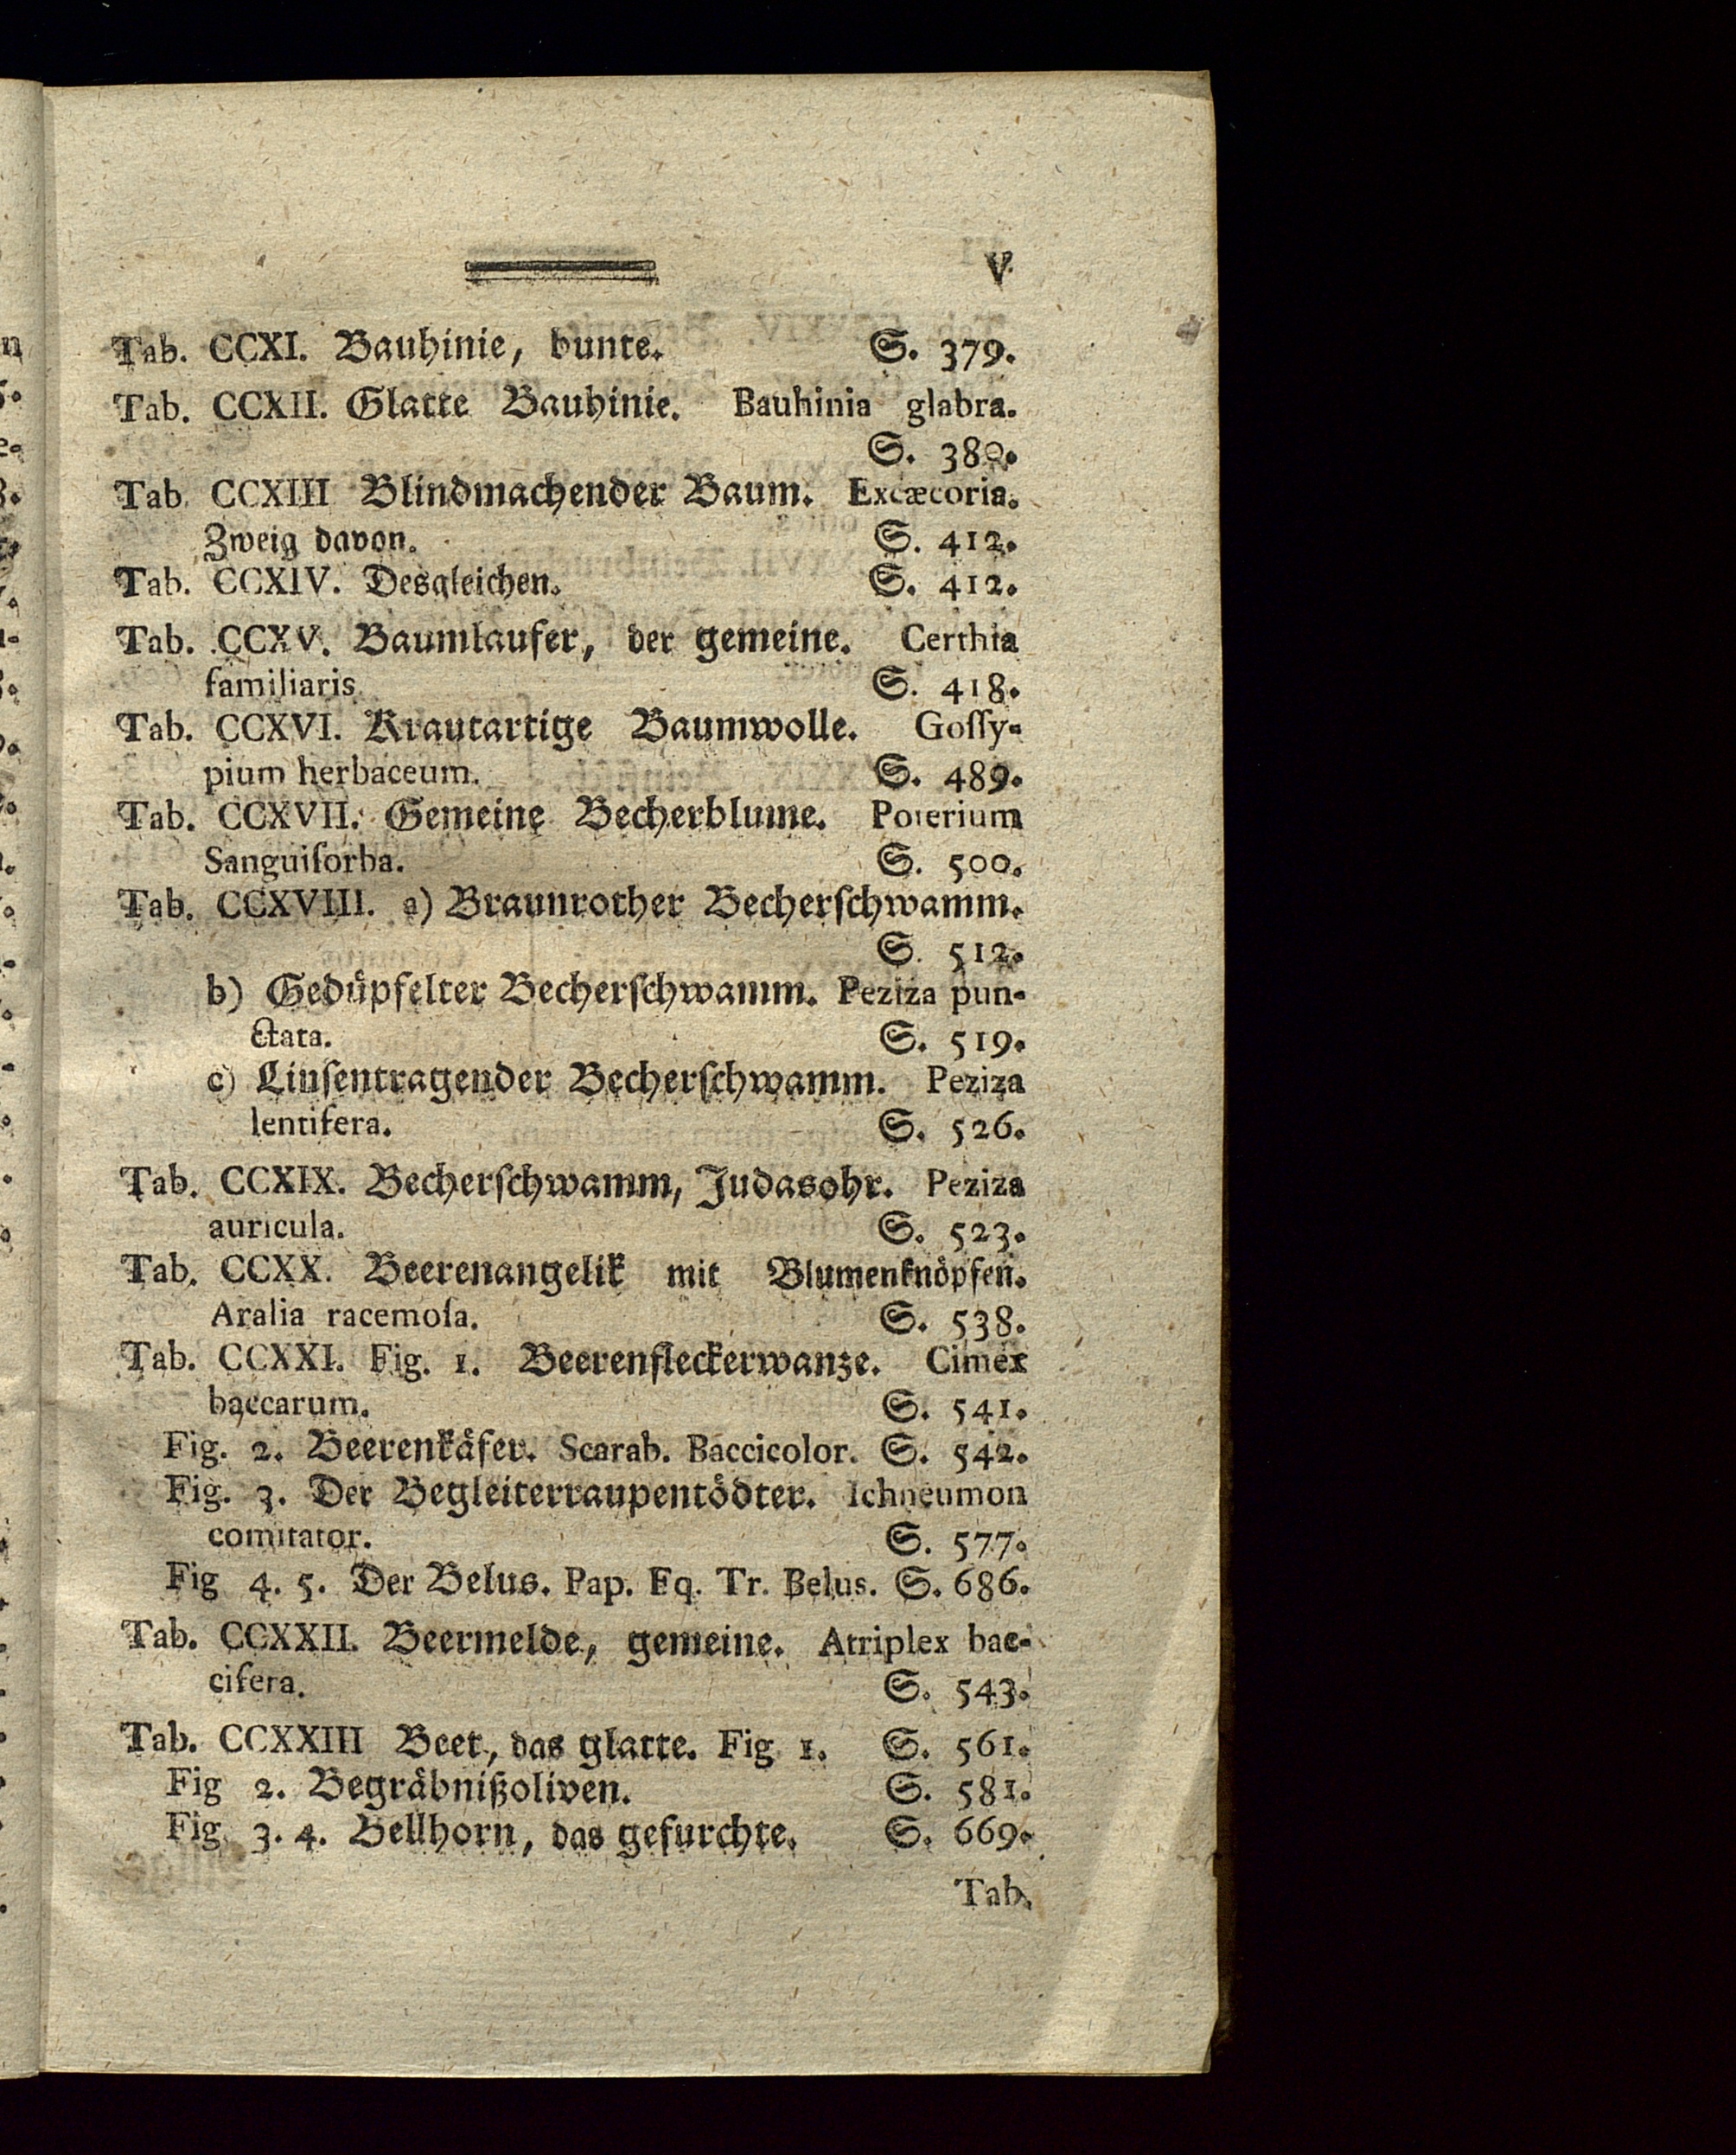 V
Tab. CCXI. Bauhinie, bunte. S. 379.
Tab. CCXII. Glatte Bauhinie. Bauhinia glabra.
S. 380.
Tab. CCXIII Blindmachender Baum. Excæcoria.
Zweig davon. S. 412.
Tab. CCXIV. Desgleichen. S. 412.
Tab. CCXV. Baumlaufer, der gemeine. Certhia
familiaris S. 418.
Tab. CCXVI. Krautartige Baumwolle. Goſſy-
pium herbaceum. S. 489.
Tab. CCXVII. Gemeine Becherblume. Poterium
Sanguiſorba. S. 500.
Tab. CCXVIII. a) Braunrother Becherſchwamm.
S. 512.
b) Gedüpfelter Becherſchwamm. Peziza pun-
ctata. S. 519.
c) Linſentragender Becherſchwamm. Peziza
lentifera. S. 526.
Tab. CCXIX. Becherſchwamm, Judasohr. Peziza
auricula. S. 523.
Tab. CCXX. Beerenangelik mit Blumenknöpfen.
Aralia racemoſa. S. 538.
Tab. CCXXI. Fig. 1. Beerenfleckerwanze. Cimex
baccarum. S. 541.
Fig. 2. Beerenkäfer. Scarab. Baccicolor. S. 542.
Fig. 3. Der Begleiterraupentödter. Ichneumon
comitator. S. 577.
Fig 4. 5. Der Belus. Pap. Eq. Tr. Belus. S. 686.
Tab. CCXXII. Beermelde, gemeine. Atriplex bac-
cifera. S. 543.
Tab. CCXXIII Beet, das glatte. Fig 1. S. 561.
Fig 2. Begräbnißoliven. S. 581.
Fig. 3. 4. Bellhorn, das gefurchte. S. 669.
Tab.